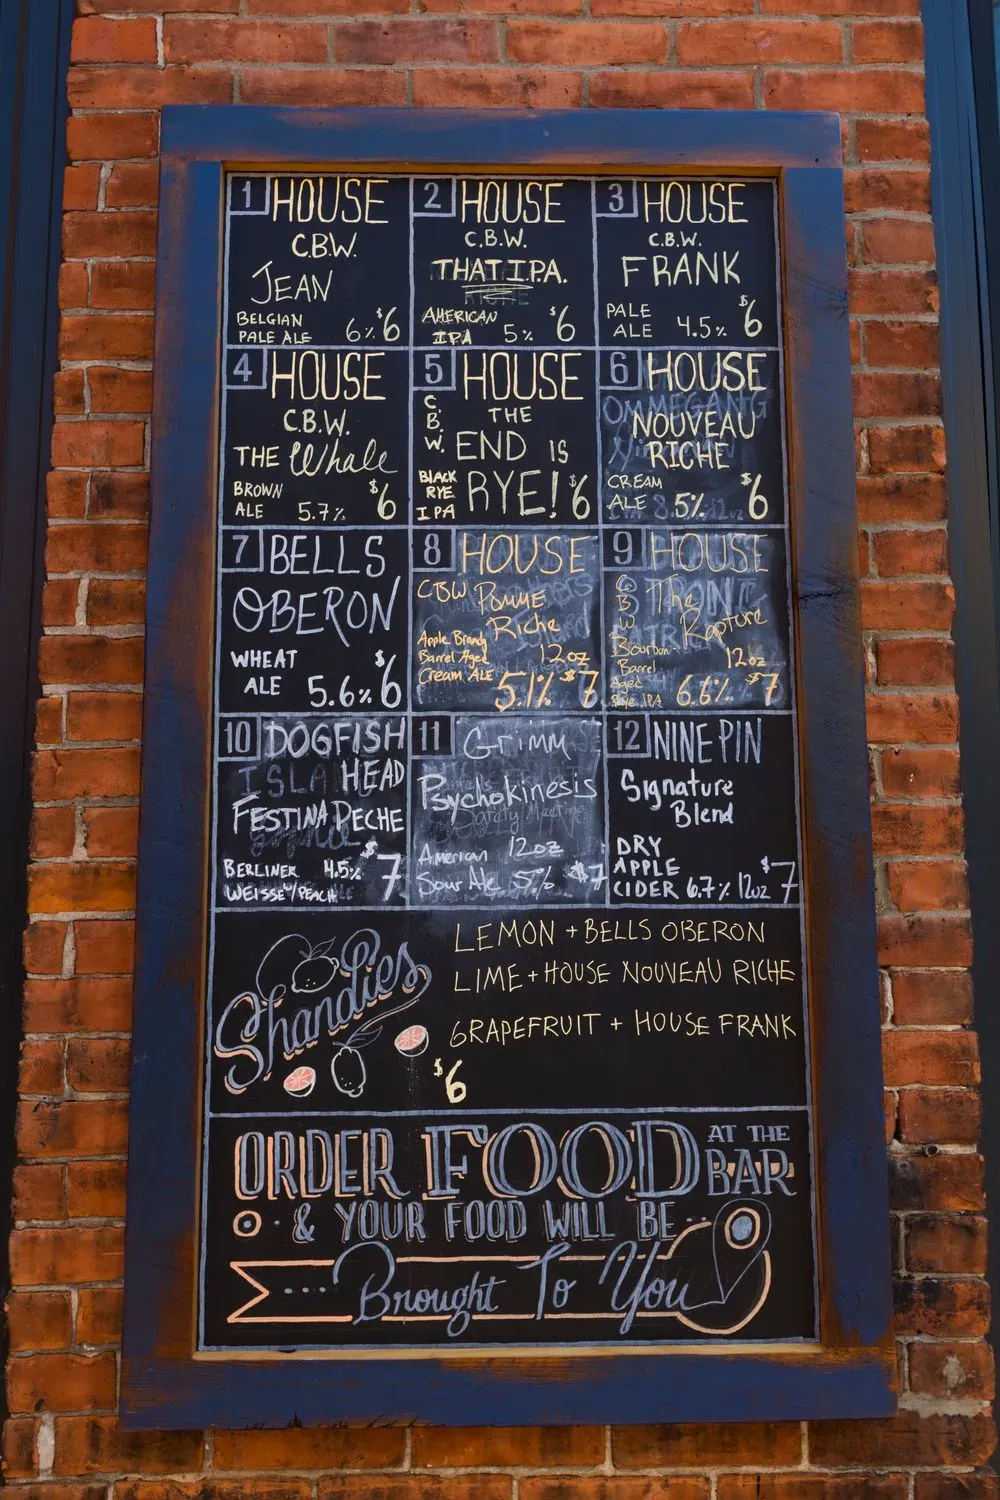 1 HOUSE
C.B.W.
JEAN
BELGIAN
PALE ALE 6% $6
2 HOUSE
C.B.W.
THAT I.P.A.
AMERICAN
IPA 5% $6
3 HOUSE
C.B.W.
FRANK
PALE
ALE 4.5% $6
4 HOUSE
C.B.W.
THE Whale
BROWN
ALE 5.7% $6
5 HOUSE
C.B.W.
THE
END IS
RYE!
BLACK
RYE
IPA $6
6 HOUSE
NOUVEAU
RICHE
CREAM
ALE 5% $6
7 BELLS
OBERON
WHEAT
ALE 5.6% $6
8 HOUSE
CBW Pomme
Riche
Apple Brandy
Barrel Aged 12oz
Cream ALE 5.1% $7
9 HOUSE
CBW The
Rapture
Bourbon
Barrel 12oz
Aged
Rye IPA 6.6% $7
10 DOGFISH
HEAD
FESTINA PECHE
BERLINER 4.5% $7
WEISSE W/ PEACH
11 Grimm
Psychokinesis
American 12oz
Sour Ale 5% $7
12 NINE PIN
Signature
Blend
DRY
APPLE
CIDER 6.7% 12oz $7
Shandies
LEMON + BELLS OBERON
LIME + HOUSE NOUVEAU RICHE
GRAPEFRUIT + HOUSE FRANK
$6
ORDER FOOD AT THE BAR
& YOUR FOOD WILL BE
Brought To You